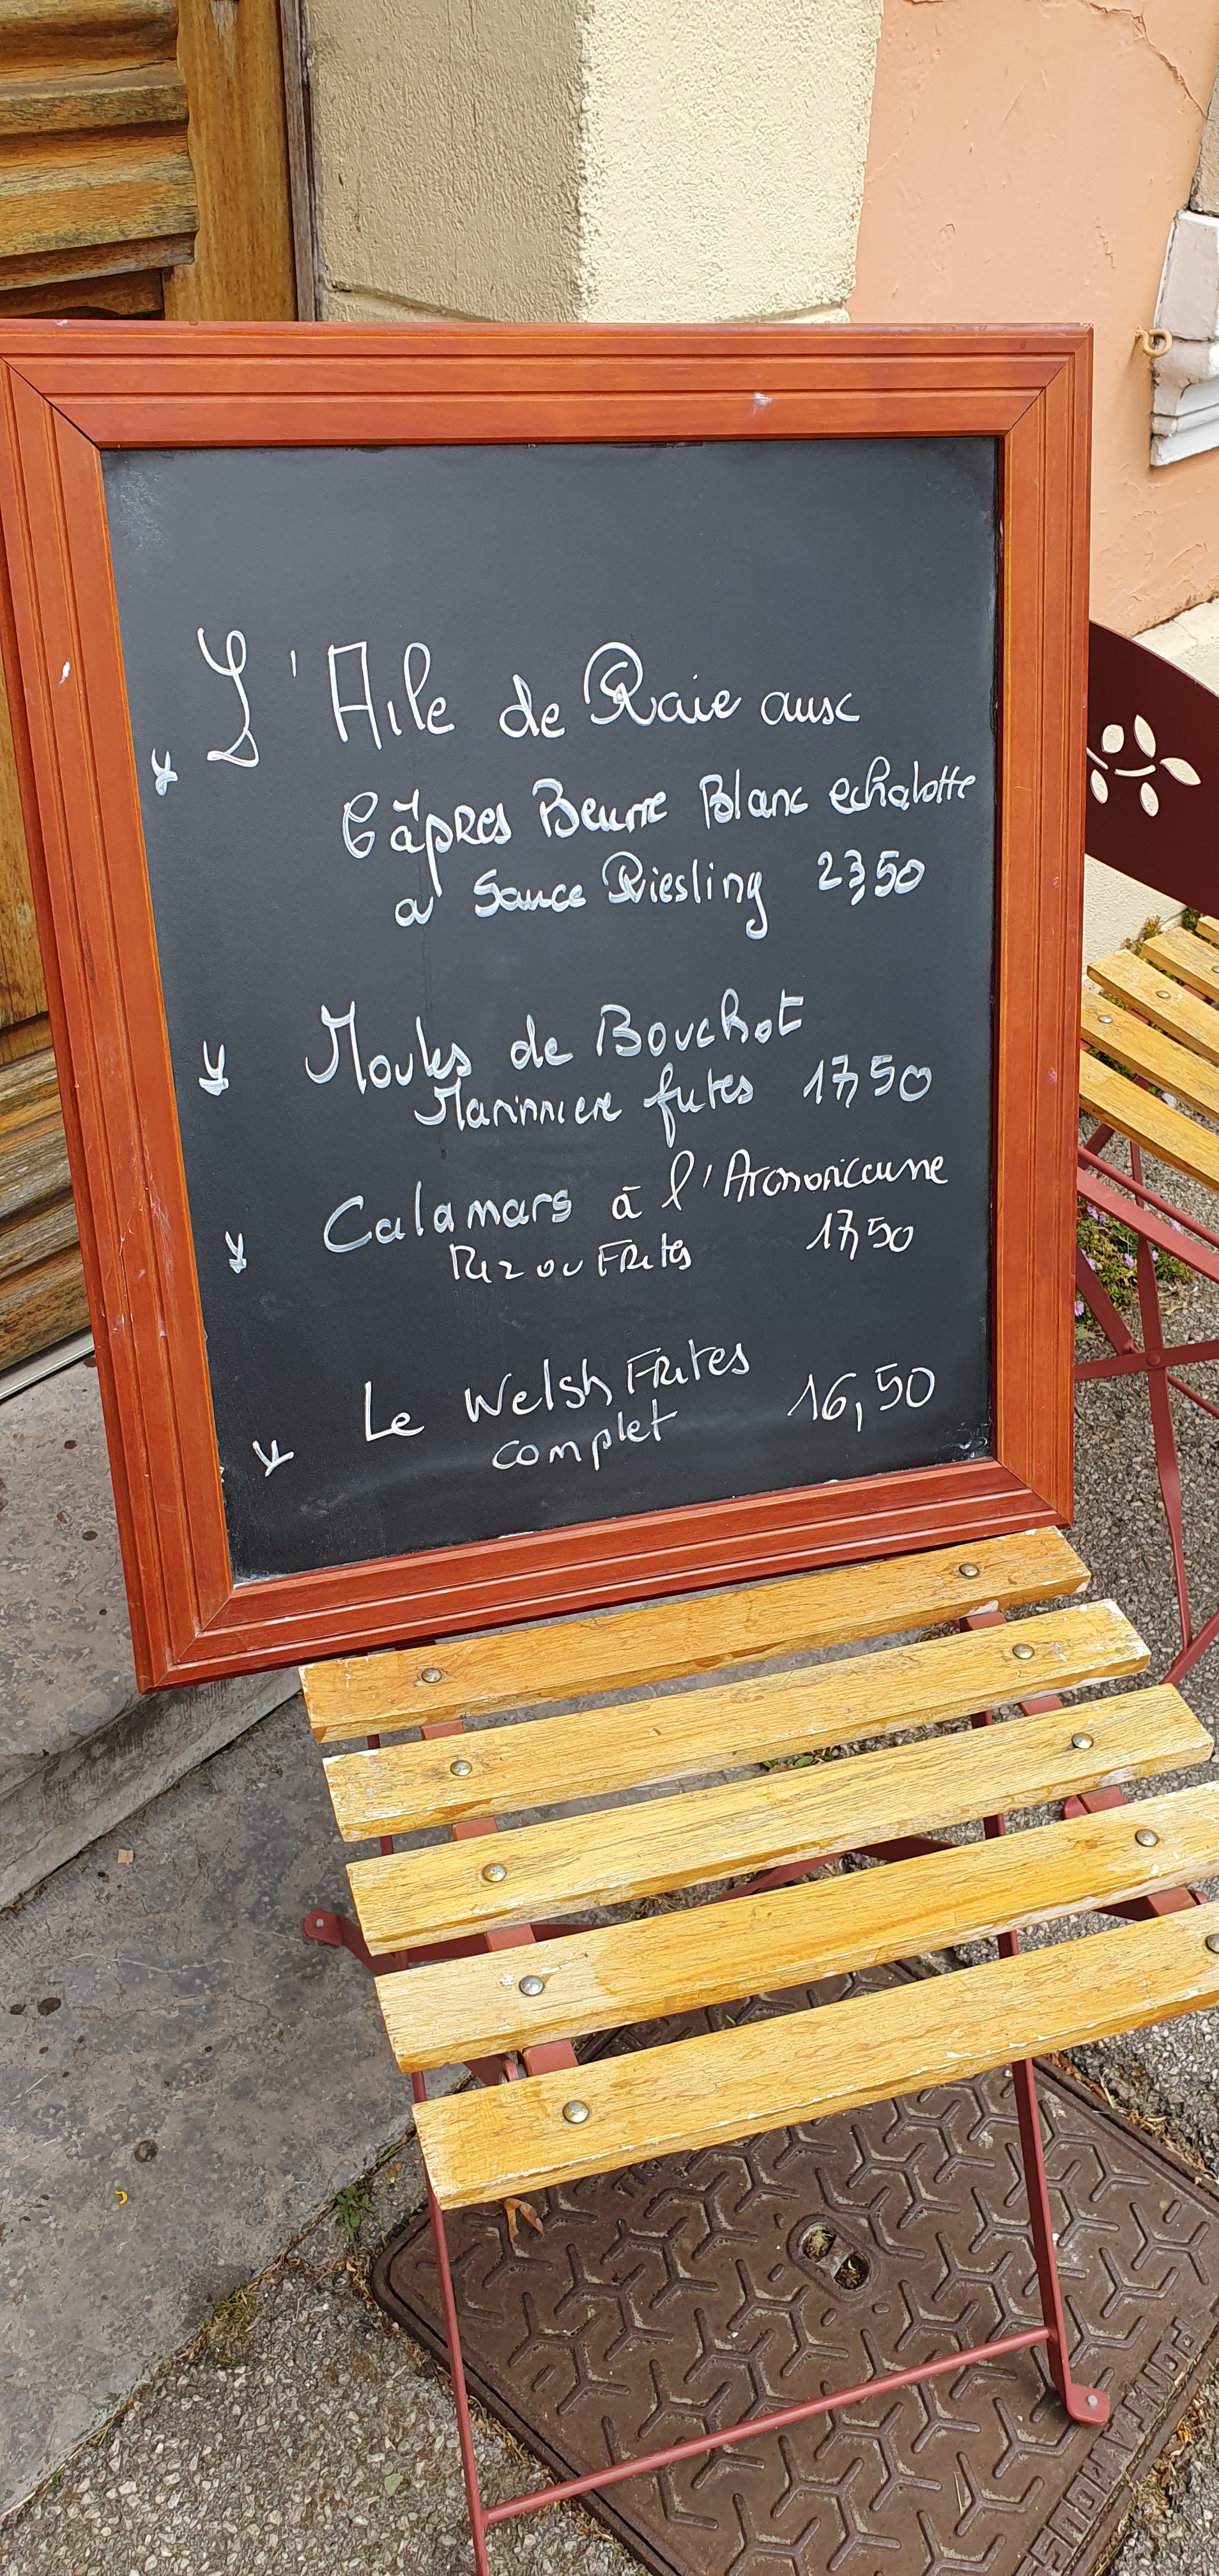 L'Aile de Raie aux
Câpres Beurre Blanc echalotte
a Sauce Riesling 23,50
Moules de Bouchot
Marinniere frites 17,50
Calamars à l'Armoricaine
Riz ou Frites 17,50
Le Welsh Frites
complet 16,50
PONT A MOUSSON